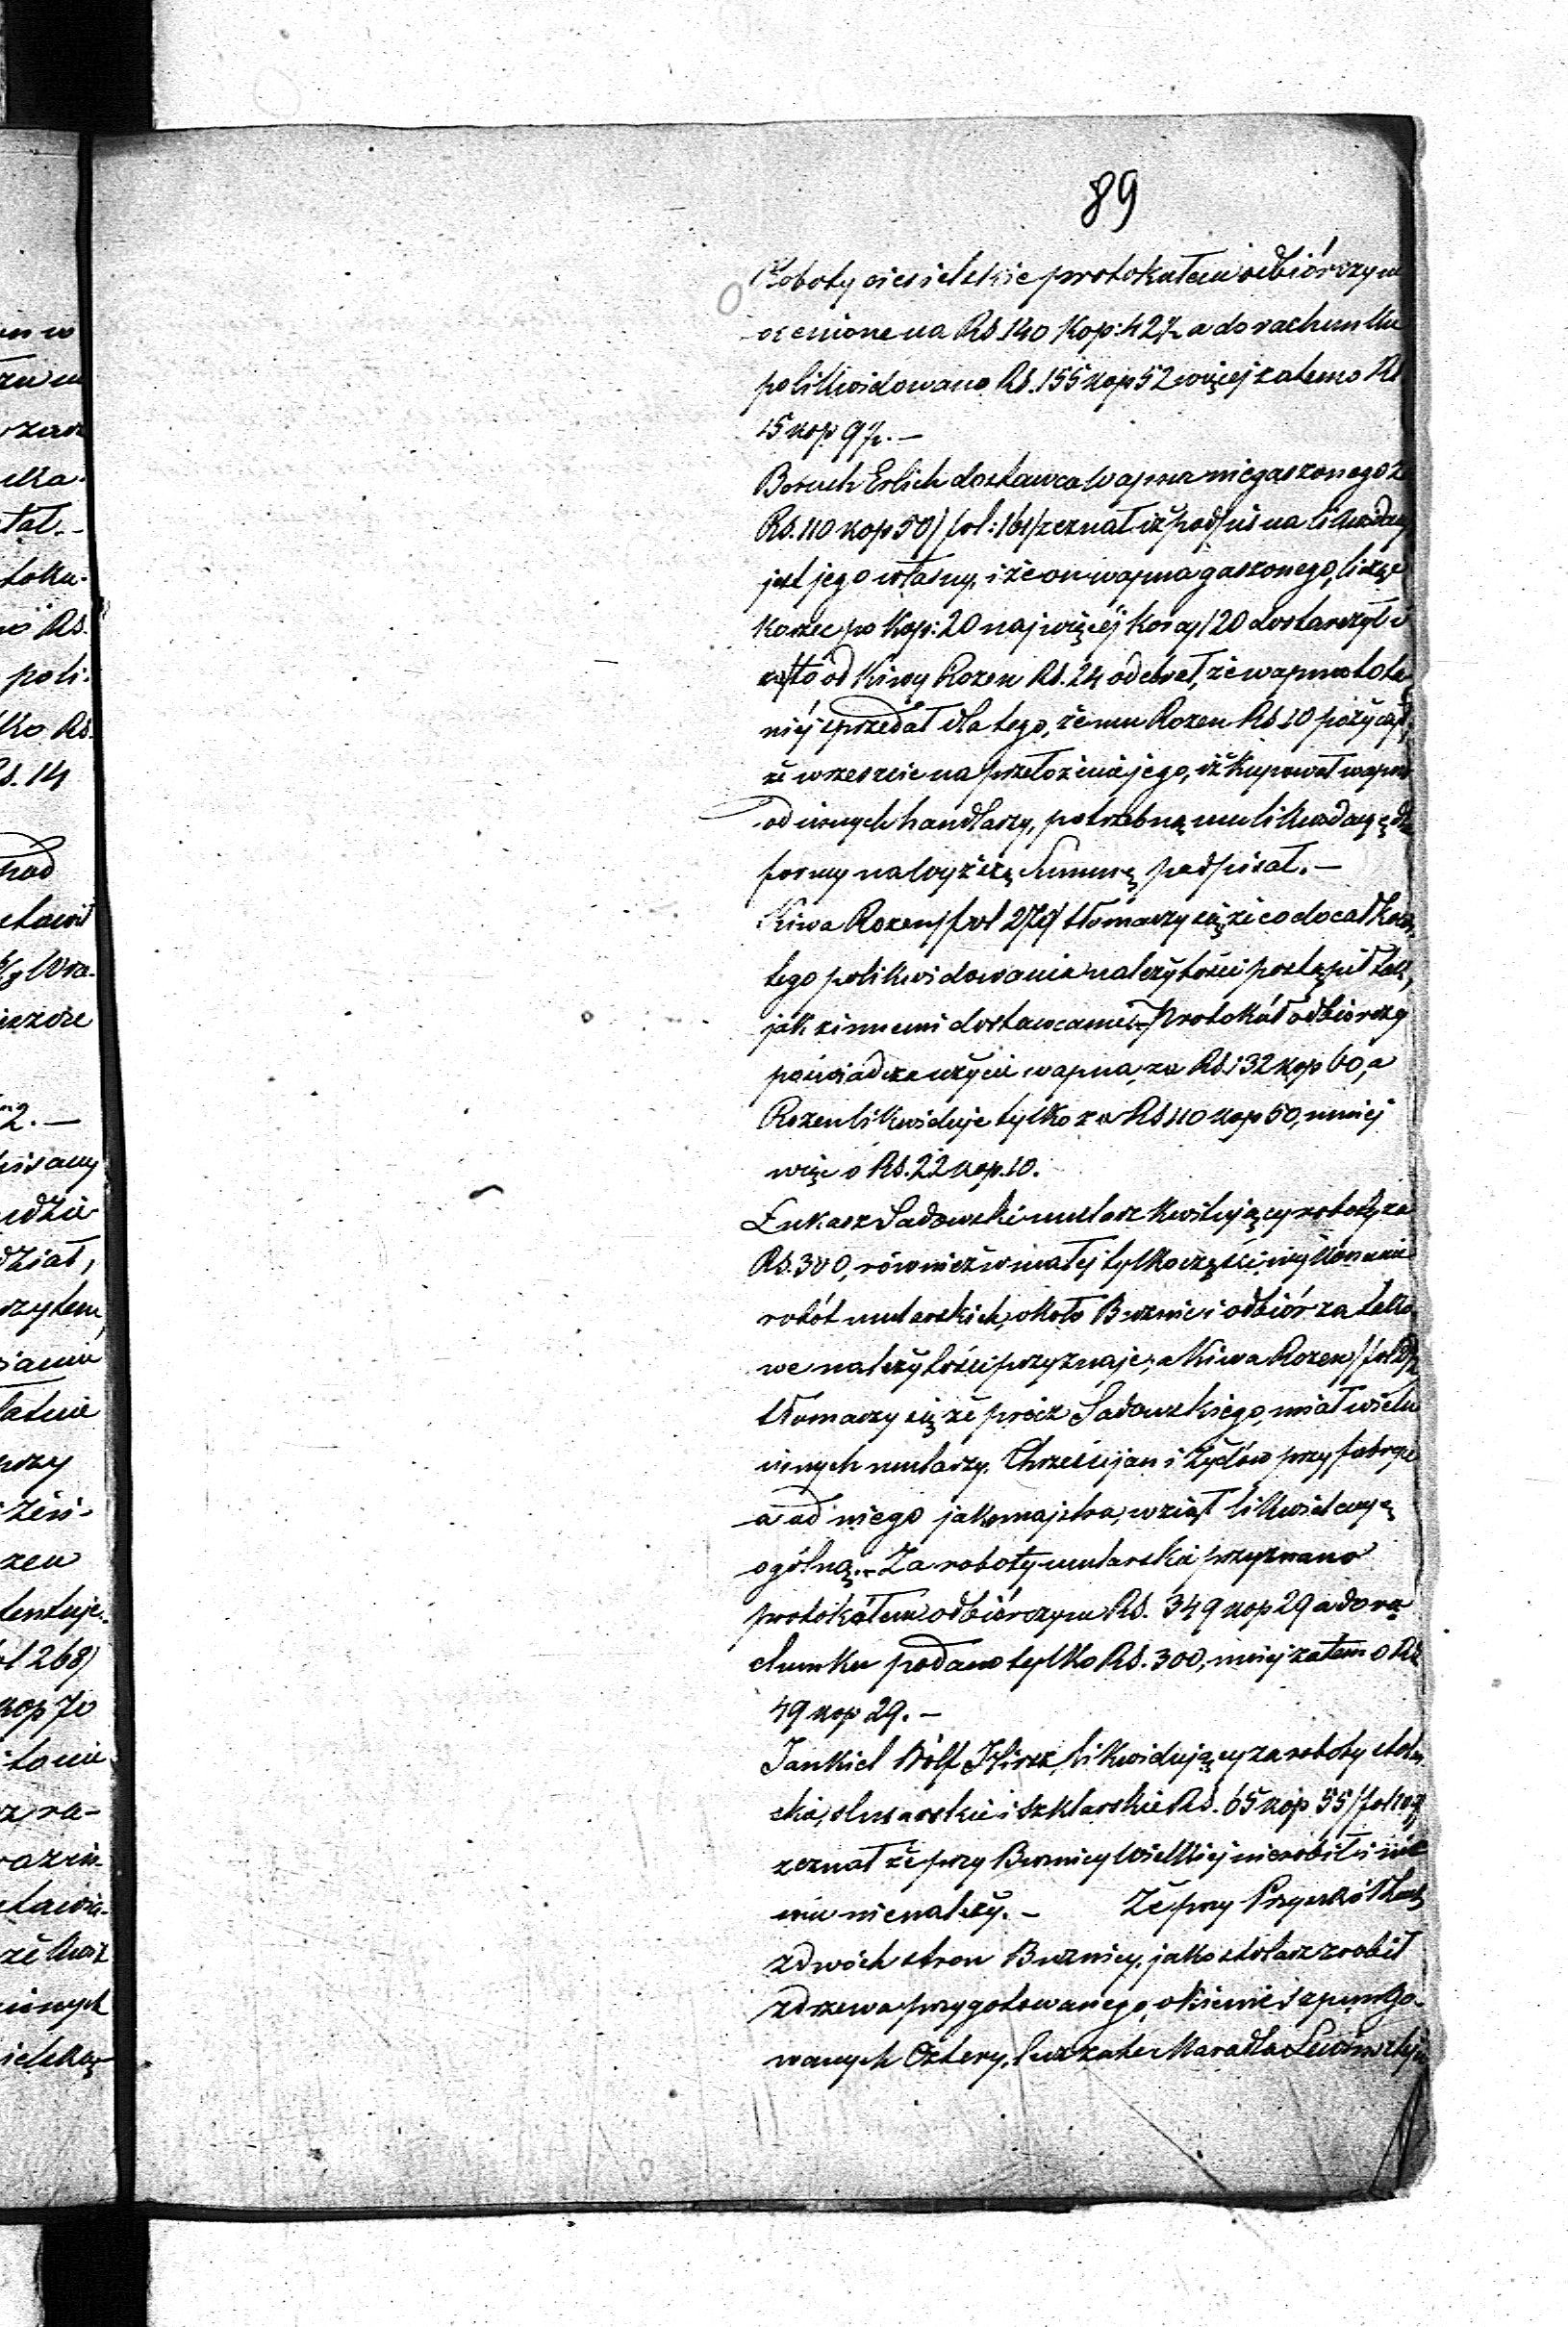 89
Roboty ciesielskie protokułem odbiórczym
ocenione na Rs. 140 Kop: 42½ a do rachunku
polikwidowano Rs. 155 kop 52 więcej zatem o Rs
15 kop 9½. —
Boruch Erlich dostawca wapna niegaszonego za
Rs. 110 kop 50 / fol: 161/ zeznał iż podpis na likwidacyi
jest jego własny, i że on wapna gaszonego, licząc
korzec po Kop: 20 najwięcéj korcy 120 dostarczył i
za to od Kiwy Rozen Rs. 24 odebrał, że wapno to ta
niéj sprzedał dla tego, że mu Rozen Rs 10 pożyczył,
że wreszcie na przełożenie jego, iż kupował wapno
od innych handlarzy, potrzebną mu likwidacyę dla
formy na wyższą Summę podpisał. —
Kiwa Rozen / fol 279/ tłómaczy się, że co do całkowi
tego polikwidowania należytości postąpił tak,
jak z innemi dostawcami. — Protokół odbiorczy
poświadcza użycie wapna, za Rs. 132 kop 60, a
Rozen likwiduje tylko za Rs 110 kop 50, mniej
więc o Rs. 22 kop. 10.
Łukasz Sadowski mularz kwitujący roboty za
Rs. 300, również w małej tylko części wykonanie
robót mularskich, około Bużnic i odbiór za tako
we należytości przyznaje, a Kiwa Rozen / fol
tłomaczy się że prócz Sadowskiego, miał wielu
innych mularzy. Chrześcijan i Żydów przy fabryce
a od niego jako majstra, wziął likwidacyę
ogólną. — Za roboty mularskie przyznano
protokółem odbiórczym Rs. 349 kop 29 a do ra
chunku podano tylko Rs. 300, mniej zatem o Rs
49 kop 29. —
Jankiel Wolf Hirsz, likwidujący za roboty stolar
skie, slusarskie i szklarskie Rs. 65 kop 55 / fol
zeznał że przy Bużnicy Wielkiej nie robił i nic
mu nienależy. — Że przy Przyszkółkach
z dwóch stron Bużnicy, jako stolarz zrobił
z drzewa przygotowanego, okienic szpungo-
wanych Cztery,